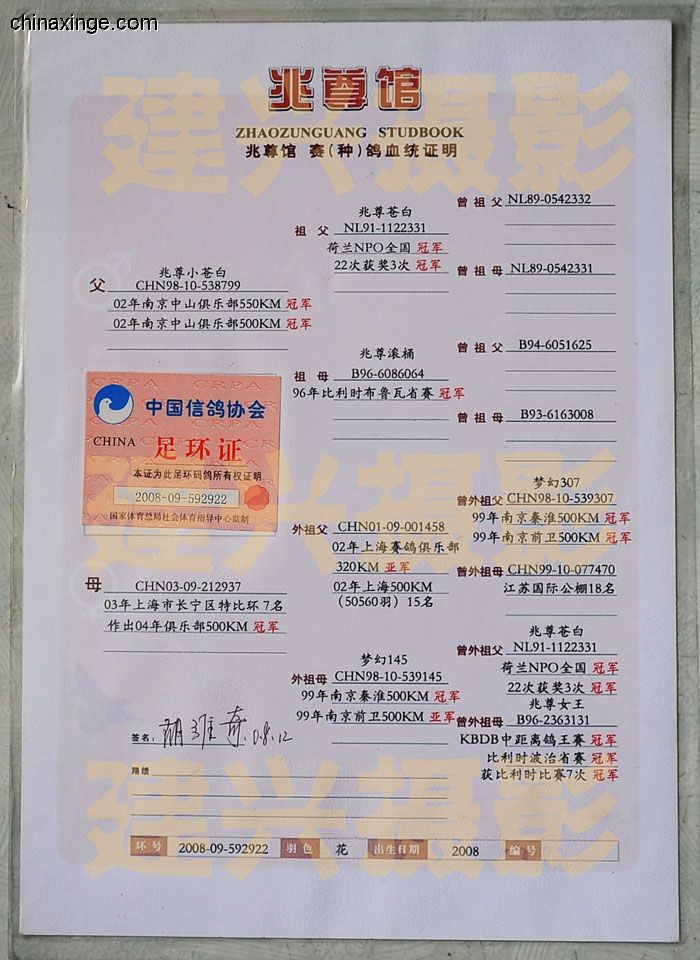 chinaxinge.com
建兴摄影
兆尊馆
ZHAOZUNGUANG STUDBOOK
兆尊馆 赛(种)鸽血统证明
父
兆尊小苍白
CHN98-10-538799
02年南京中山俱乐部550KM 冠军
02年南京中山俱乐部500KM 冠军
祖父
兆尊苍白
NL91-1122331
荷兰NPO全国 冠军
22次获奖3次 冠军
曾祖父 NL89-0542332
曾祖母 NL89-0542331
祖母
兆尊滚桶
B96-6086064
96年比利时布鲁瓦省赛 冠军
曾祖父 B94-6051625
曾祖母 B93-6163008
CRPA CRPA CRPA
中国信鸽协会
CHINA 足环证
本证为此足环码鸽所有权证明
2008-09-592922
国家体育总局社会体育指导中心监制
建兴摄影
母
CHN03-09-212937
03年上海市长宁区特比环 7名
作出04年俱乐部500KM 冠军
外祖父 CHN01-09-001458
02年上海赛鸽俱乐部
320KM 亚军
02年上海500KM
(50560羽) 15名
梦幻307
曾外祖父 CHN98-10-539307
99年南京秦淮500KM 冠军
99年南京前卫500KM 冠军
曾外祖母 CHN99-10-077470
江苏国际公棚18名
梦幻145
外祖母 CHN98-10-539145
99年南京秦淮500KM 冠军
99年南京前卫500KM 亚军
兆尊苍白
曾外祖父 NL91-1122331
荷兰NPO全国 冠军
22次获奖3次 冠军
兆尊女王
曾外祖母 B96-2363131
KBDB中距离鸽王赛 冠军
比利时波治省赛 冠军
获比利时比赛7次 冠军
签名:
翔绩
建兴摄影
环号 2008-09-592922 羽色 花 出生日期 2008 编号